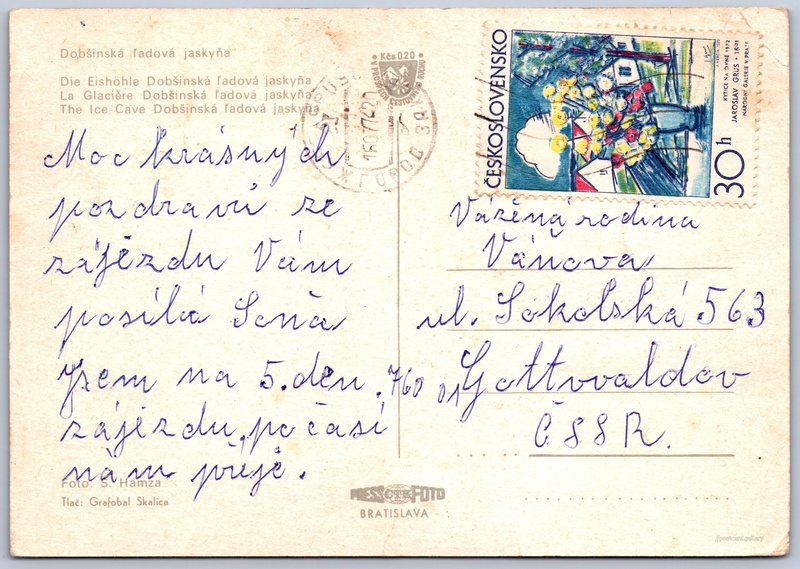 Dobšinská ľadová jaskyňa
Die Eishöhle Dobšinská ľadová jaskyňa
La Glacière Dobšinská ľadová jaskyňa
The Ice-Cave Dobšinská ľadová jaskyňa
Kčs 0.20
УЖГОРОД
ČESKOSLOVENSKO
KYTICE NA OKNĚ 1972
JAROSLAV GRUS * 1891
NÁRODNÍ GALERIE V PRAZE
30h
Moc krásných
pozdravů ze
zájezdu Vám
posílá Soňa
Jsem na 5. den
zájezdu, počasí
nám přeje.
Vážená rodina
Váňova
ul. Sokolská 563
760 01 Gottwaldov
ČSSR.
Foto: S. Hamza
Tlač: Grafobal Skalica
PRESSFOTO
BRATISLAVA